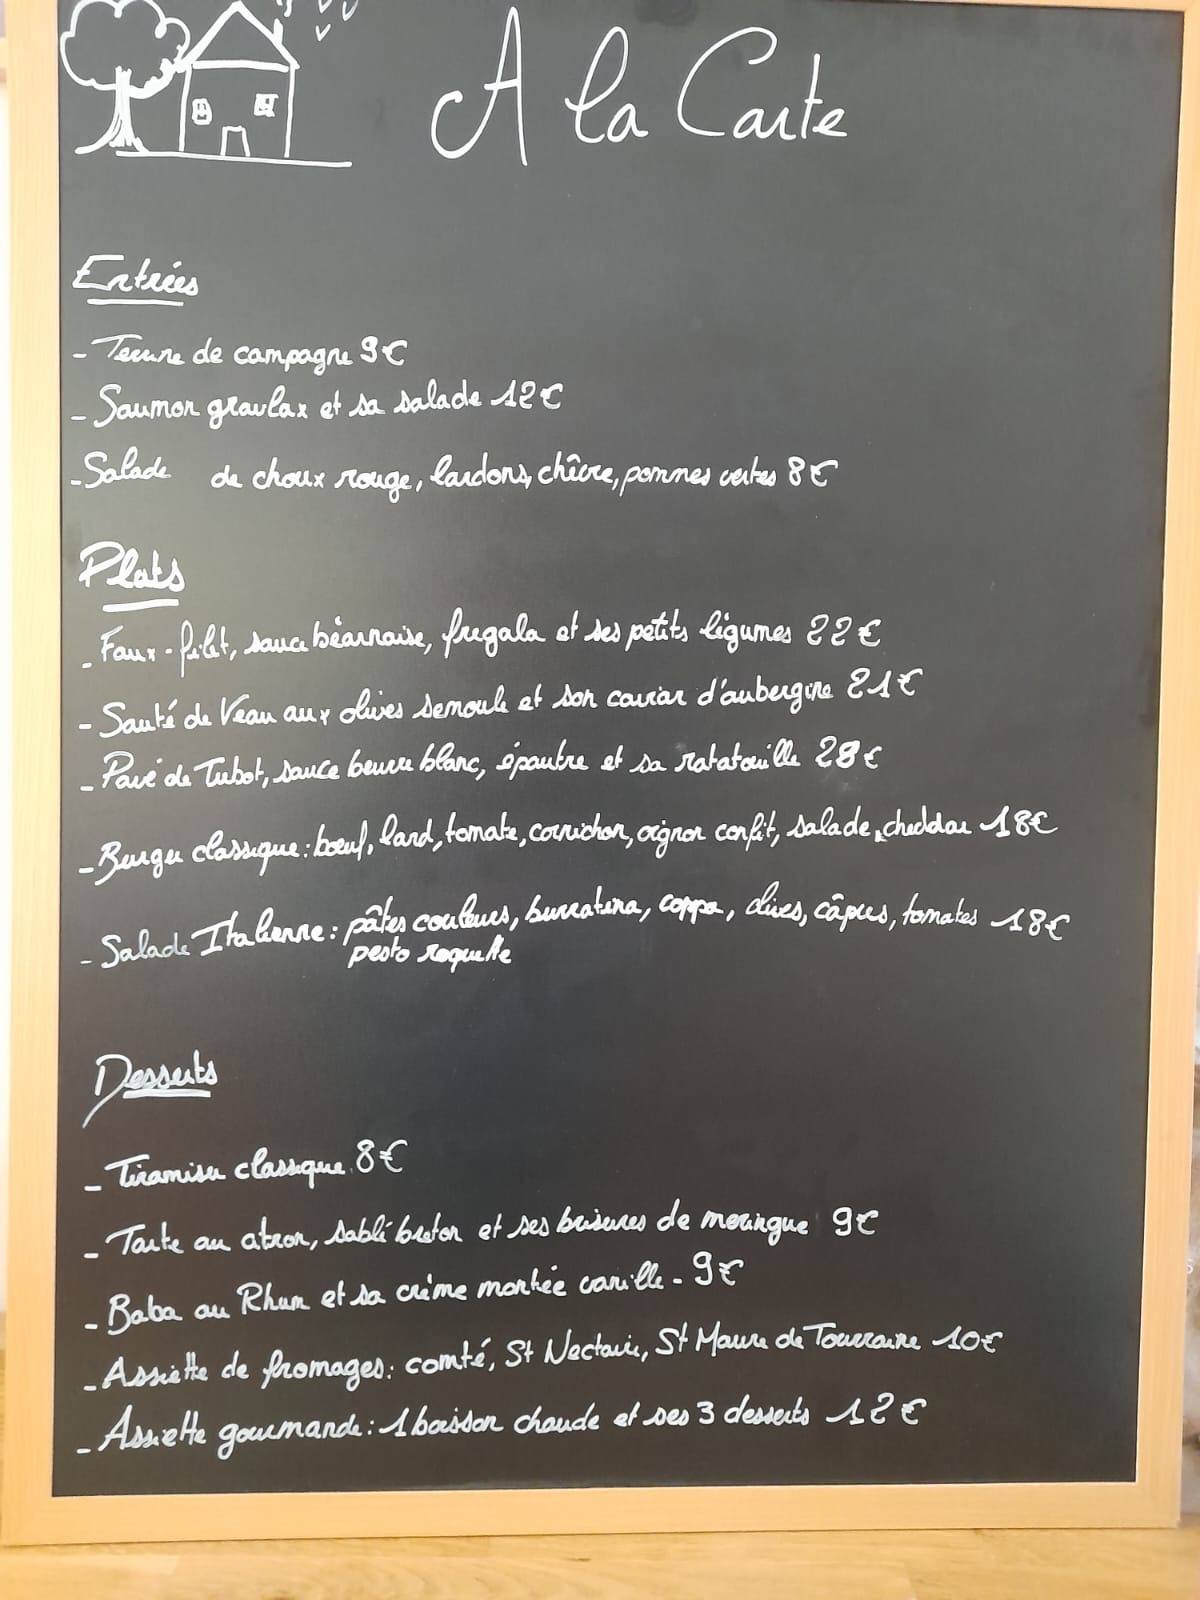 A la Carte
Entrées
- Terrine de campagne 9€
- Saumon gravlax et sa salade 12€
- Salade de choux rouge, lardons, chèvre, pommes vertes 8€
Plats
- Faux-filet, sauce béarnaise, fregala et ses petits légumes 22€
- Sauté de Veau aux olives semoule et son caviar d'aubergine 21€
- Pavé de Tubot, sauce beurre blanc, épautre et sa ratatouille 28€
- Burger classique : bœuf, lard, tomate, cornichon, oignon confit, salade, cheddar 18€
- Salade Italienne : pâtes couleurs, burratina, coppa, olives, câpres, tomates 18€
pesto roquette
Desserts
- Tiramisu classique 8€
- Tarte au citron, sablé breton et ses brisures de meringue 9€
- Baba au Rhum et sa crème montée vanille - 9€
- Assiette de fromages : comté, St Nectaire, St Maure de Tourraine 10€
- Assiette gourmande : 1 boisson chaude et ses 3 desserts 12€